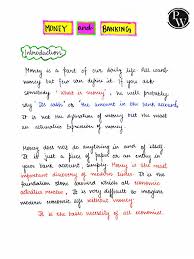 PW
MONEY and BANKING
Introduction
Money is a part of our daily life. All want
money but few can define it. If you ask
somebody "What is money", he will probably
say "Its cash" or "the amount in the bank account.
It is not the definition of money but the most
an expression of money.
Money does not do anything in and of itself.
It is just a piece of paper or an entry in
your bank account, simply. Money is the most
important discovery of modern times. It is the
foundation stone around which all economic
activities revolve. It is very difficult to imagine
modern economic life without money.
It is the basic necessity of all economies.